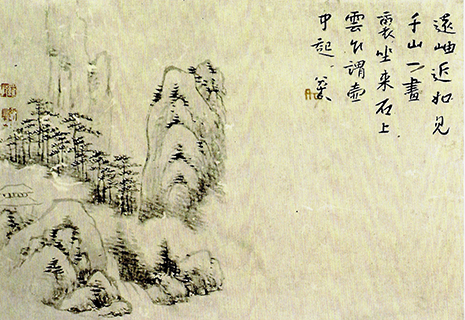 遠岫近如見
千山一畫
裏坐來石上
雲乍謂壺
中起